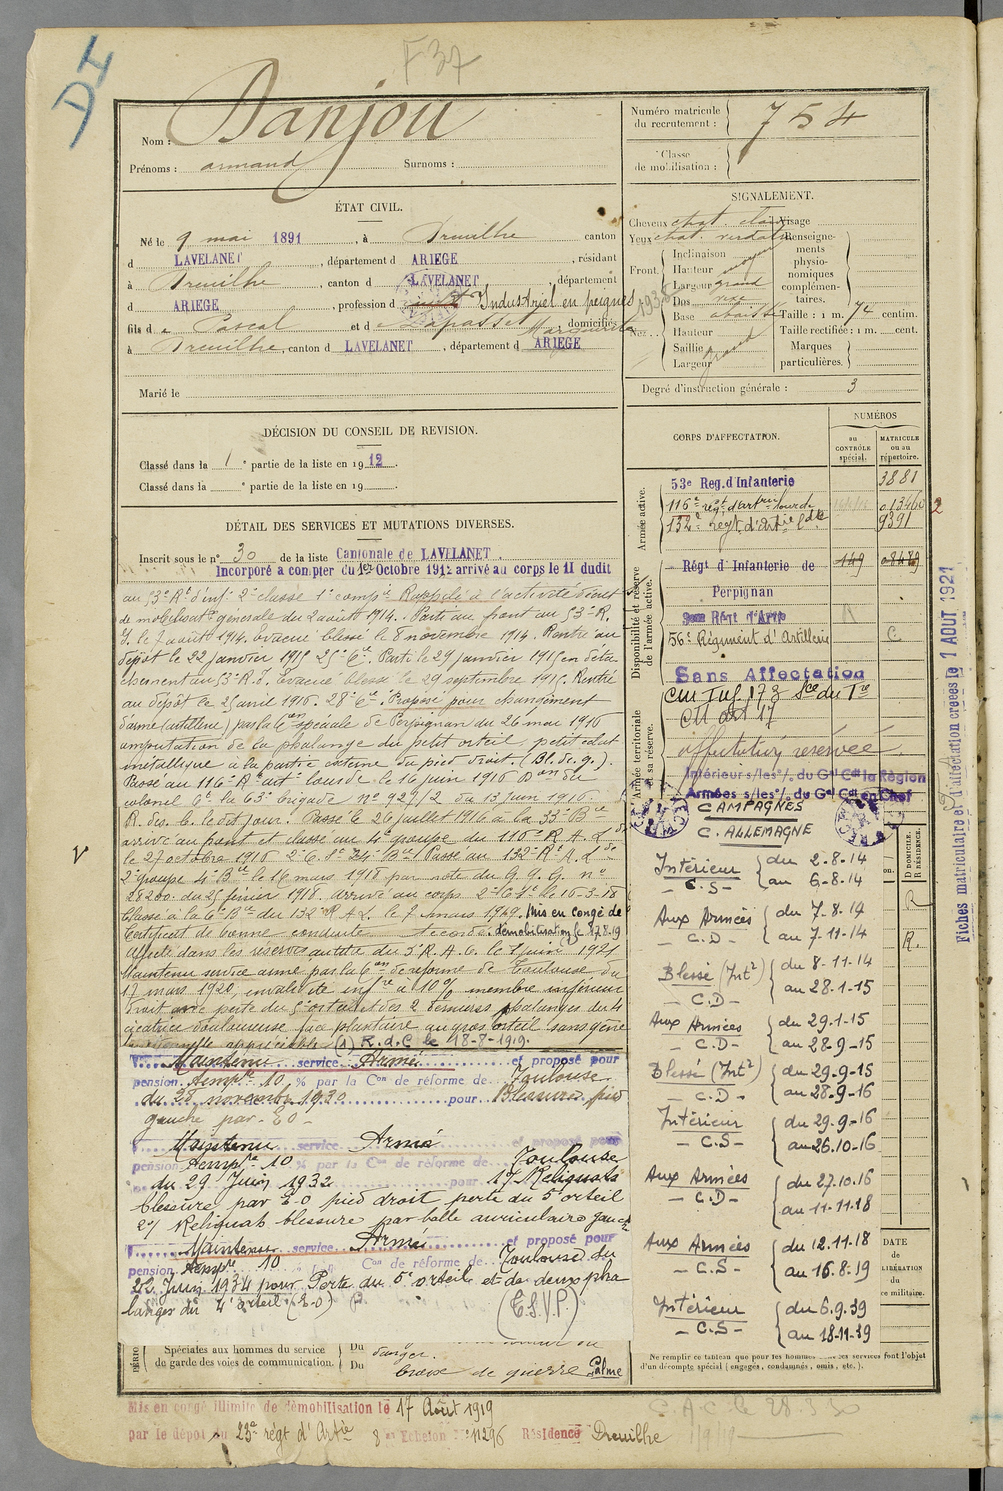 DI
F37
Nom : Danjou
Prénoms : armand Surnoms :
Numéro matricule
du recrutement : 754
Classe
de mobilisation :
ÉTAT CIVIL.
Né le 9 mai 1891, à Dreuilhe canton
d LAVELANET, département d ARIEGE, résidant
à Dreuilhe, canton d LAVELANET, département
d ARIEGE, profession d Industriel en peignes
fils de Pascal et de Lapasset Marguerite domiciliés
à Dreuilhe, canton d LAVELANET, département d ARIEGE
Marié le
SIGNALEMENT.
Cheveux chat. clair
Yeux chat. verdatre
Front.
Inclinaison
Hauteur moyen
Largeur grand
Nez.
Dos vexe
Base abaissée
Hauteur
Saillie
Largeur grand
Visage
Renseigne-
ments
physio-
nomiques
complémen-
taires.
Taille : 1 m. 74 centim.
Taille rectifiée : 1 m. cent.
Marques
particulières.
1935
Degré d'instruction générale : 3
DÉCISION DU CONSEIL DE REVISION.
Classé dans la 1e partie de la liste en 1912.
Classé dans la e partie de la liste en 19
DÉTAIL DES SERVICES ET MUTATIONS DIVERSES.
Inscrit sous le n° 30 de la liste Cantonale de LAVELANET.
Incorporé à compter du 1er Octobre 1912 arrivé au corps le 11 dudit
au 53e Rt d'inf. 2e classe 1e compie. Rappelé à l'activité Décret
de mobilisation générale du 2 août 1914. Parti au front au 53e R.
I. le 7 août 1914. évacué blessé le 8 novembre 1914. Rentré au
dépôt le 22 janvier 1915 25e Cie. Parti le 29 janvier 1915 en déta-
chement au 53e R.I. évacué blessé le 29 septembre 1915. Rentré
au dépôt le 25 avril 1916. 28e Cie. Proposé pour changement
d'arme (artillerie) par la Con spéciale de Perpignan du 26 mai 1916
amputation de la phalange du petit orteil petit éclat
métallique à la partie externe du pied droit. (Bl. de g.).
Passé au 116e Rt art. lourde le 16 juin 1916 Don du
colonel Ct la 63e brigade n° 929/12 du 13 juin 1916.
R. des c. le dit jour. Passé le 26 juillet 1916 à la 33e Bie
arrivé au front et classé au 4e groupe du 116e R.A.Lde
le 27 octobre 1916 Passé au 132e Rt A.Lde
2e groupe 4e Bie le 16 mars 1918 par note du G.Q.G. n°
28200 du 25 février 1918. arrivé au corps le 16-3-18
Classé à la 6e Bie du 132e R.A.L. le 7 mars 1919. Mis en congé de
Certificat de bonne conduite accordé. démobilisation le 17.8.19
Affecté dans les réserves au titre du 3e R.A.C. le 1 juin 1921
Maintenu service armé par la Con de réforme de Toulouse du
17 mars 1920, invalidité infre à 10% membre inférieur
droit avec perte du 5e orteil et des 2 dernières phalanges du 4
cicatrice douloureuse face plantaire au gros orteil sans gêne
appréciable (1) R.d.C le 18-8-1919.
Maintenu service Armé et proposé pour
pension tempre 10 % par la Con de réforme de Toulouse
du 25 novembre 1930 pour Blessures pied
gauche par E O
Maintenu service Armé et proposé pour
pension tempre 10 % par la Con de réforme de Toulouse
du 29 Juin 1932 pour 1°/ Reliquats
blessure par E.O pied droit perte du 5e orteil
2°/ Reliquats blessure par balle auriculaire gauche
Maintenu service Armé et proposé pour
pension tempre 10 Con de réforme de Toulouse du
22 Juin 1934 pour Perte du 5e orteil et de deux pha-
langes du 4e orteil (E.O)
(T.S.V.P.)
Spéciales aux hommes du service
de garde des voies de communication.
Du danger.
Du Croix de guerre Palme
CORPS D'AFFECTATION.
NUMÉROS
au
CONTRÔLE
spécial.
MATRICULE
ou au
répertoire.
Armée active.
53e Reg.d'Infanterie 3881
116e régt d'artrie lourde 013460 2
132e Régt d'Artie Lde 9391
Disponibilité et réserve
de l'armée active.
Régt d'Infanterie de 149 08489
Perpignan
56e Régiment d'Artillerie C
Sans Affectation
Armée territoriale
et sa réserve.
CM Inf 173 Sce du Tre
CM art 17
affectation réservée
Intérieurs s/les o/. du Gal Cdt la Région
Armées s/les o/. du Gal Cdt en Chef
CAMPAGNES
C. ALLEMAGNE
Intérieur du 2-8-14
- C.S - au 6-8-14
Aux Armées du 7-8-14
- C.D - au 7-11-14
Blessé (Int2) du 8-11-14
- C.D - au 28-1-15
Aux Armées du 29-1-15
- C.D - au 28-9-15
Blessé (Int2) du 29-9-15
- C.D - au 28-9-16
Intérieur du 29-9-16
- C.S - au 26-10-16
Aux Armées du 27-10-16
- C.D - au 11-11-18
Aux Armées du 12-11-18
- C.S - au 16-8-19
Intérieur du 6-9-39
- C.S - au 18-11-39
DOMICILE.
RÉSIDENCE.
R
R.
DATE
de
LIBÉRATION
du
ce militaire.
Ne remplir ce tableau que pour les hommes services font l'objet
d'un décompte spécial (engagés, condamnés, omis, etc.).
Fiches matriculaire et d'affectation créées le 1 AOUT 1921
V
Mis en congé illimité de démobilisation le 17 Août 1919
par le dépôt du 23e régt d'Artie 8e Echelon n° 11296 Résidence Dreuilhe
C.A.C. le 28-3-30